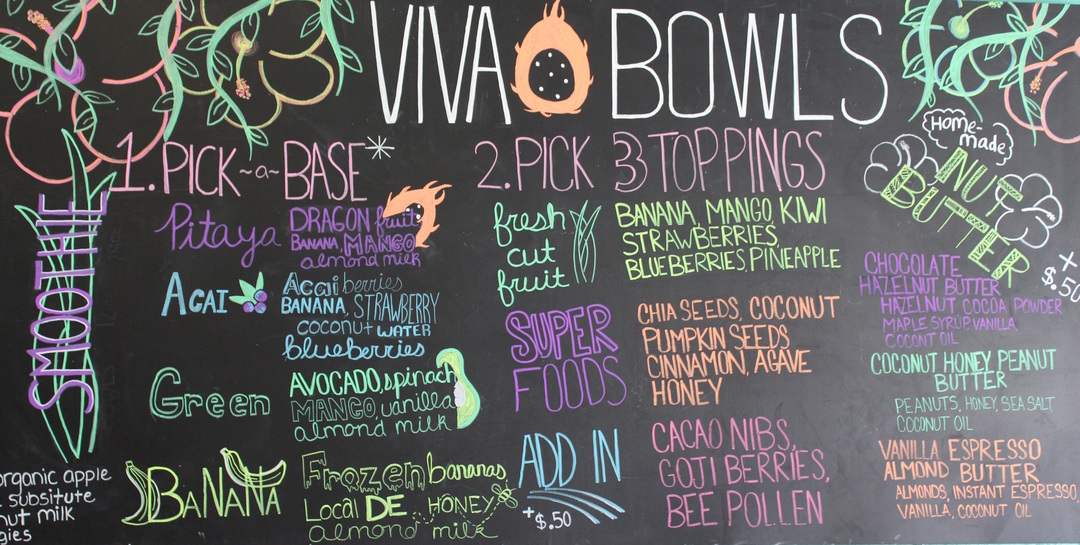 VIVA BOWLS
1. PICK ~a~ BASE*
SMOOTHIE
Pitaya
DRAGON fruit
BANANA, MANGO
almond milk
ACAI
Acai berries
BANANA, STRAWBERRY
coconut WATER
blueberries
Green
AVOCADO, spinach
MANGO, vanilla
almond milk
BANANA
Frozen bananas
Local DE HONEY
almond milk
organic apple
subsitute
nut milk
gies
2. PICK 3 TOPPINGS
fresh
cut
fruit
BANANA, MANGO, KIWI
STRAWBERRIES,
BLUEBERRIES, PINEAPPLE
SUPER
FOODS
CHIA SEEDS, COCONUT
PUMPKIN SEEDS
CINNAMON, AGAVE
HONEY
ADD IN
+$.50
CACAO NIBS,
GOJI BERRIES,
BEE POLLEN
HOME-
made
NUT
BUTTER
+
$.50
CHOCOLATE
HAZELNUT BUTTER
HAZELNUT COCOA POWDER
MAPLE SYRUP, VANILLA,
COCONT OIL
COCONUT HONEY PEANUT
BUTTER
PEANUTS, HONEY, SEA SALT,
COCONUT OIL
VANILLA ESPRESSO
ALMOND BUTTER
ALMONDS, INSTANT ESPRESSO,
VANILLA, COCONUT OIL